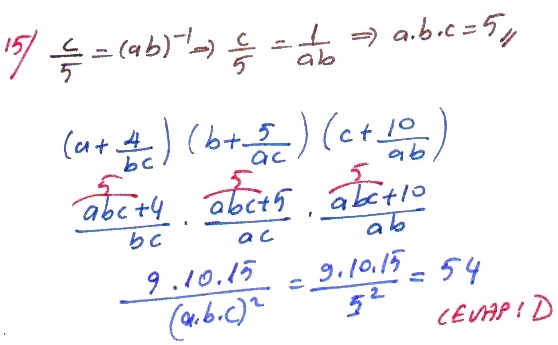 15/ c/5 = (ab)^-1 ⇒ c/5 = 1/ab ⇒ a.b.c = 5,,
(a + 4/bc) (b + 5/ac) (c + 10/ab)
5 5 5
abc+4/bc . abc+5/ac . abc+10/ab
9.10.15/(a.b.c)^2 = 9.10.15/5^2 = 54
CEVAP : D